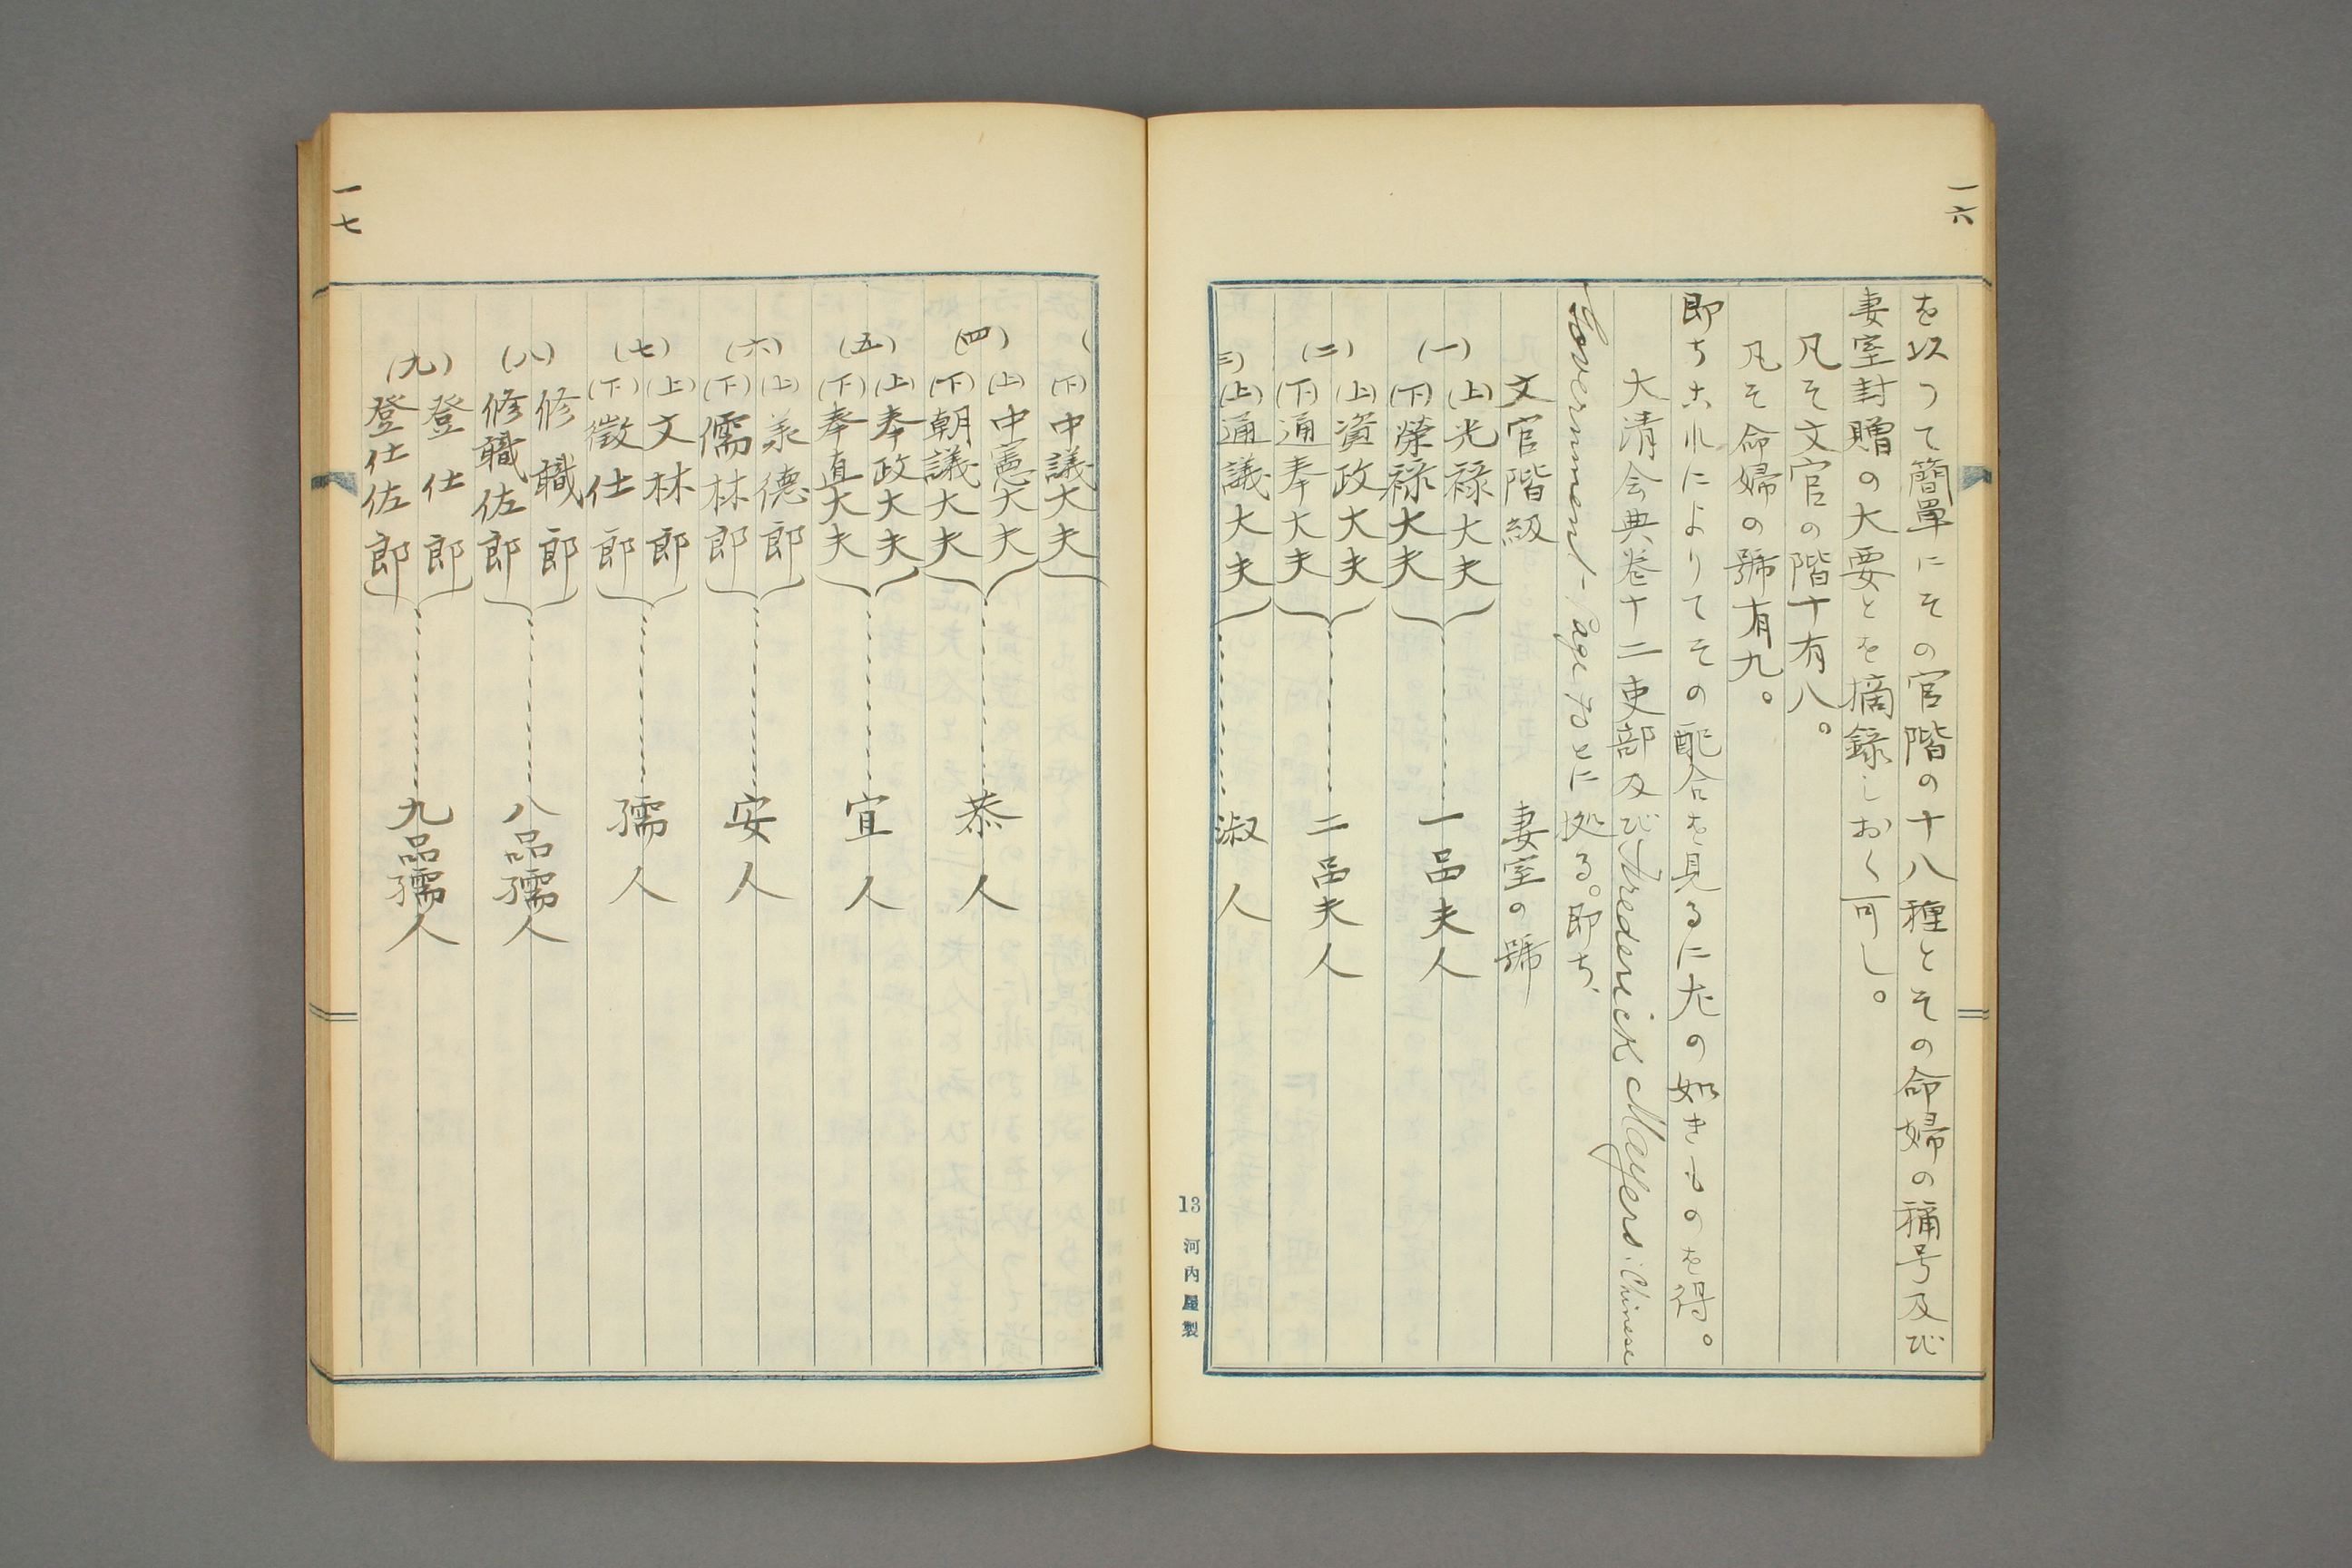 一六
を以つて簡單にその官階の十八種とその命婦の稱号及び
妻室封贈の大要とを摘録しおく可し。
凡そ文官の階十有八。
凡そ命婦の號有九。
即ちこれによりてその配合を見るに左の如きものを得。
大清会典巻十二吏部及びFrederick Mayers: Chinese
Government - Page 70とに拠る。即ち、
文官階級 妻室の號
(一)
(上)光禄大夫
(下)榮禄大夫
一品夫人
(二)
(上)資政大夫
(下)通奉大夫
二品夫人
三)
(上)通議大夫
淑人
13 河内屋製
一七
(
(下)中議大夫
(四)
(上)中憲大夫
(下)朝議大夫
恭人
(五)
(上)奉政大夫
(下)奉直大夫
宜人
(六)
(上)承德郎
(下)儒林郎
安人
(七)
(上)文林郎
(下)徴仕郎
孺人
(八)
修職郎
修職佐郎
八品孺人
(九)
登仕郎
登仕佐郎
九品孺人